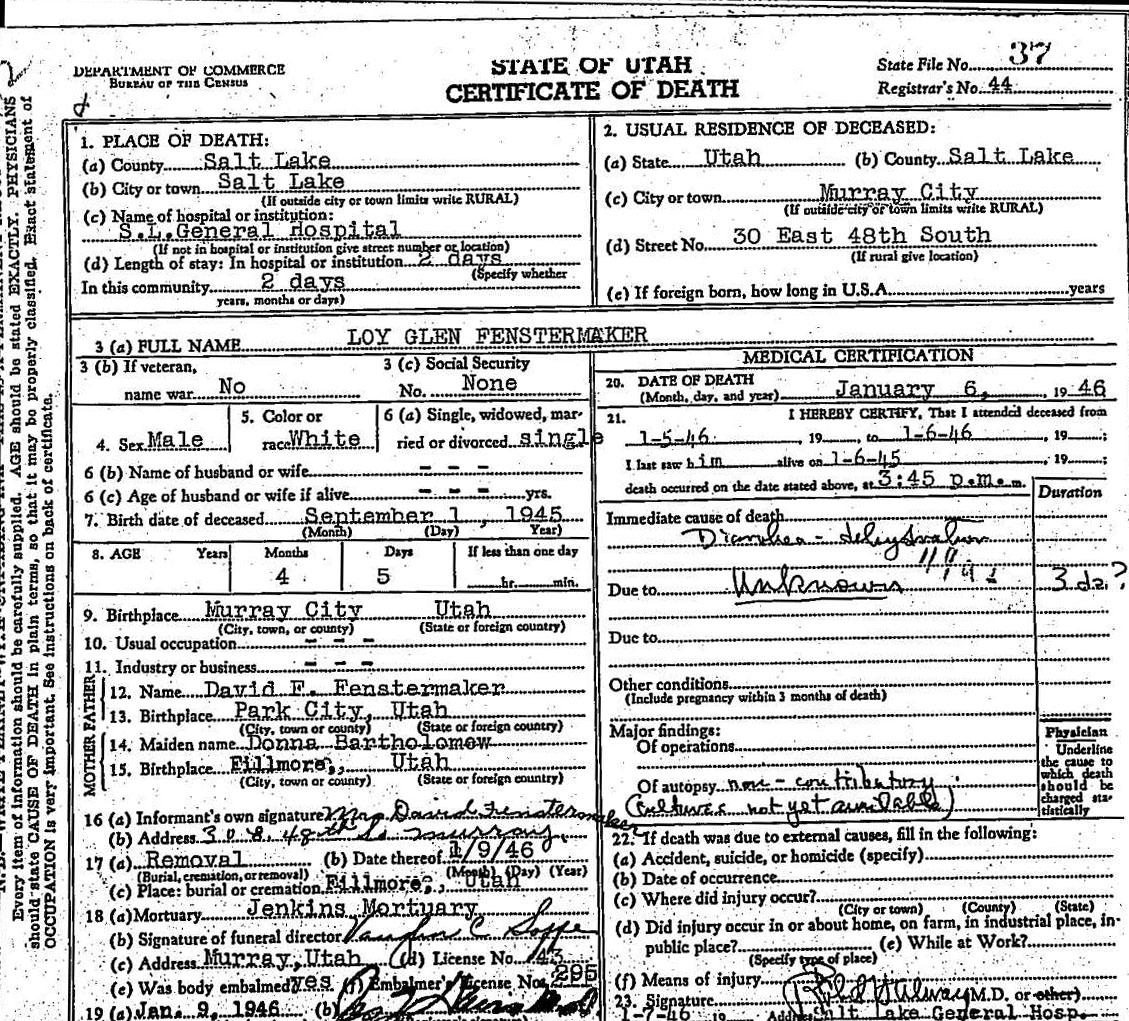 DEPARTMENT OF COMMERCE
BUREAU OF THE CENSUS
STATE OF UTAH
CERTIFICATE OF DEATH
State File No. 37
Registrar's No. 44
Every item of information should be carefully supplied. AGE should be stated EXACTLY. PHYSICIANS
should state CAUSE OF DEATH in plain terms, so that it may be properly classified. Exact statement of
OCCUPATION is very important. See instructions on back of certificate.
1. PLACE OF DEATH:
(a) County Salt Lake
(b) City or town Salt Lake
(If outside city or town limits write RURAL)
(c) Name of hospital or institution:
S.L.General Hospital
(If not in hospital or institution give street number or location)
(d) Length of stay: In hospital or institution 2 days
(Specify whether
In this community 2 days
years, months or days)
2. USUAL RESIDENCE OF DECEASED:
(a) State Utah (b) County Salt Lake
(c) City or town Murray City
(If outside city or town limits write RURAL)
(d) Street No. 30 East 48th South
(If rural give location)
(e) If foreign born, how long in U.S.A. years
3 (a) FULL NAME LOY GLEN FENSTERMAKER
3 (b) If veteran,
name war No
3 (c) Social Security
No. None
4. Sex Male
5. Color or
race White
6 (a) Single, widowed, mar-
ried or divorced single
6 (b) Name of husband or wife - - -
6 (c) Age of husband or wife if alive - - - yrs.
7. Birth date of deceased September 1, 1945
(Month) (Day) Year)
8. AGE Years Months Days If less than one day
4 5 hr. min.
9. Birthplace Murray City Utah
(City, town, or county) (State or foreign country)
10. Usual occupation - - -
11. Industry or business - - -
FATHER
12. Name David E. Fenstermaker
13. Birthplace Park City, Utah
(City, town or county) (State or foreign country)
MOTHER
14. Maiden name Donna Bartholomew
15. Birthplace Fillmore, Utah
(City, town or county) (State or foreign country)
16 (a) Informant's own signature Mrs David Fenstermaker
(b) Address 30 E. 48th S. Murray
17 (a) Removal (b) Date thereof 1/9/46
(Burial, cremation, or removal) (Month) (Day) (Year)
(c) Place: burial or cremation Fillmore, Utah
18 (a) Mortuary Jenkins Mortuary
(b) Signature of funeral director Vaughn C.
(c) Address Murray, Utah (d) License No. 43
(e) Was body embalmed? yes (f) Embalmer's License No. 295
19 (a) Jan. 9, 1946 (b)
MEDICAL CERTIFICATION
20. DATE OF DEATH
(Month, day, and year) January 6, 19 46
21. I HEREBY CERTIFY, That I attended deceased from
1-5-46, 19 , to 1-6-46, 19 ;
I last saw him alive on 1-6-45, 19 ;
death occurred on the date stated above, at 3:45 p.m. m.
Duration
Immediate cause of death
Diarrhea - dehydration
Due to Unknown 3 da?
Due to
Other conditions
(Include pregnancy within 3 months of death)
Major findings:
Of operations
Of autopsy non-contributory
(Cultures not yet available)
Physician
Underline
the cause to
which death
should be
charged sta-
tistically
22. If death was due to external causes, fill in the following:
(a) Accident, suicide, or homicide (specify)
(b) Date of occurrence
(c) Where did injury occur?
(City or town) (County) (State)
(d) Did injury occur in or about home, on farm, in industrial place, in
public place? (e) While at Work?
(Specify type of place)
(f) Means of injury
23. Signature M.D. or other)
1-7-46 19 Address Salt Lake General Hosp.